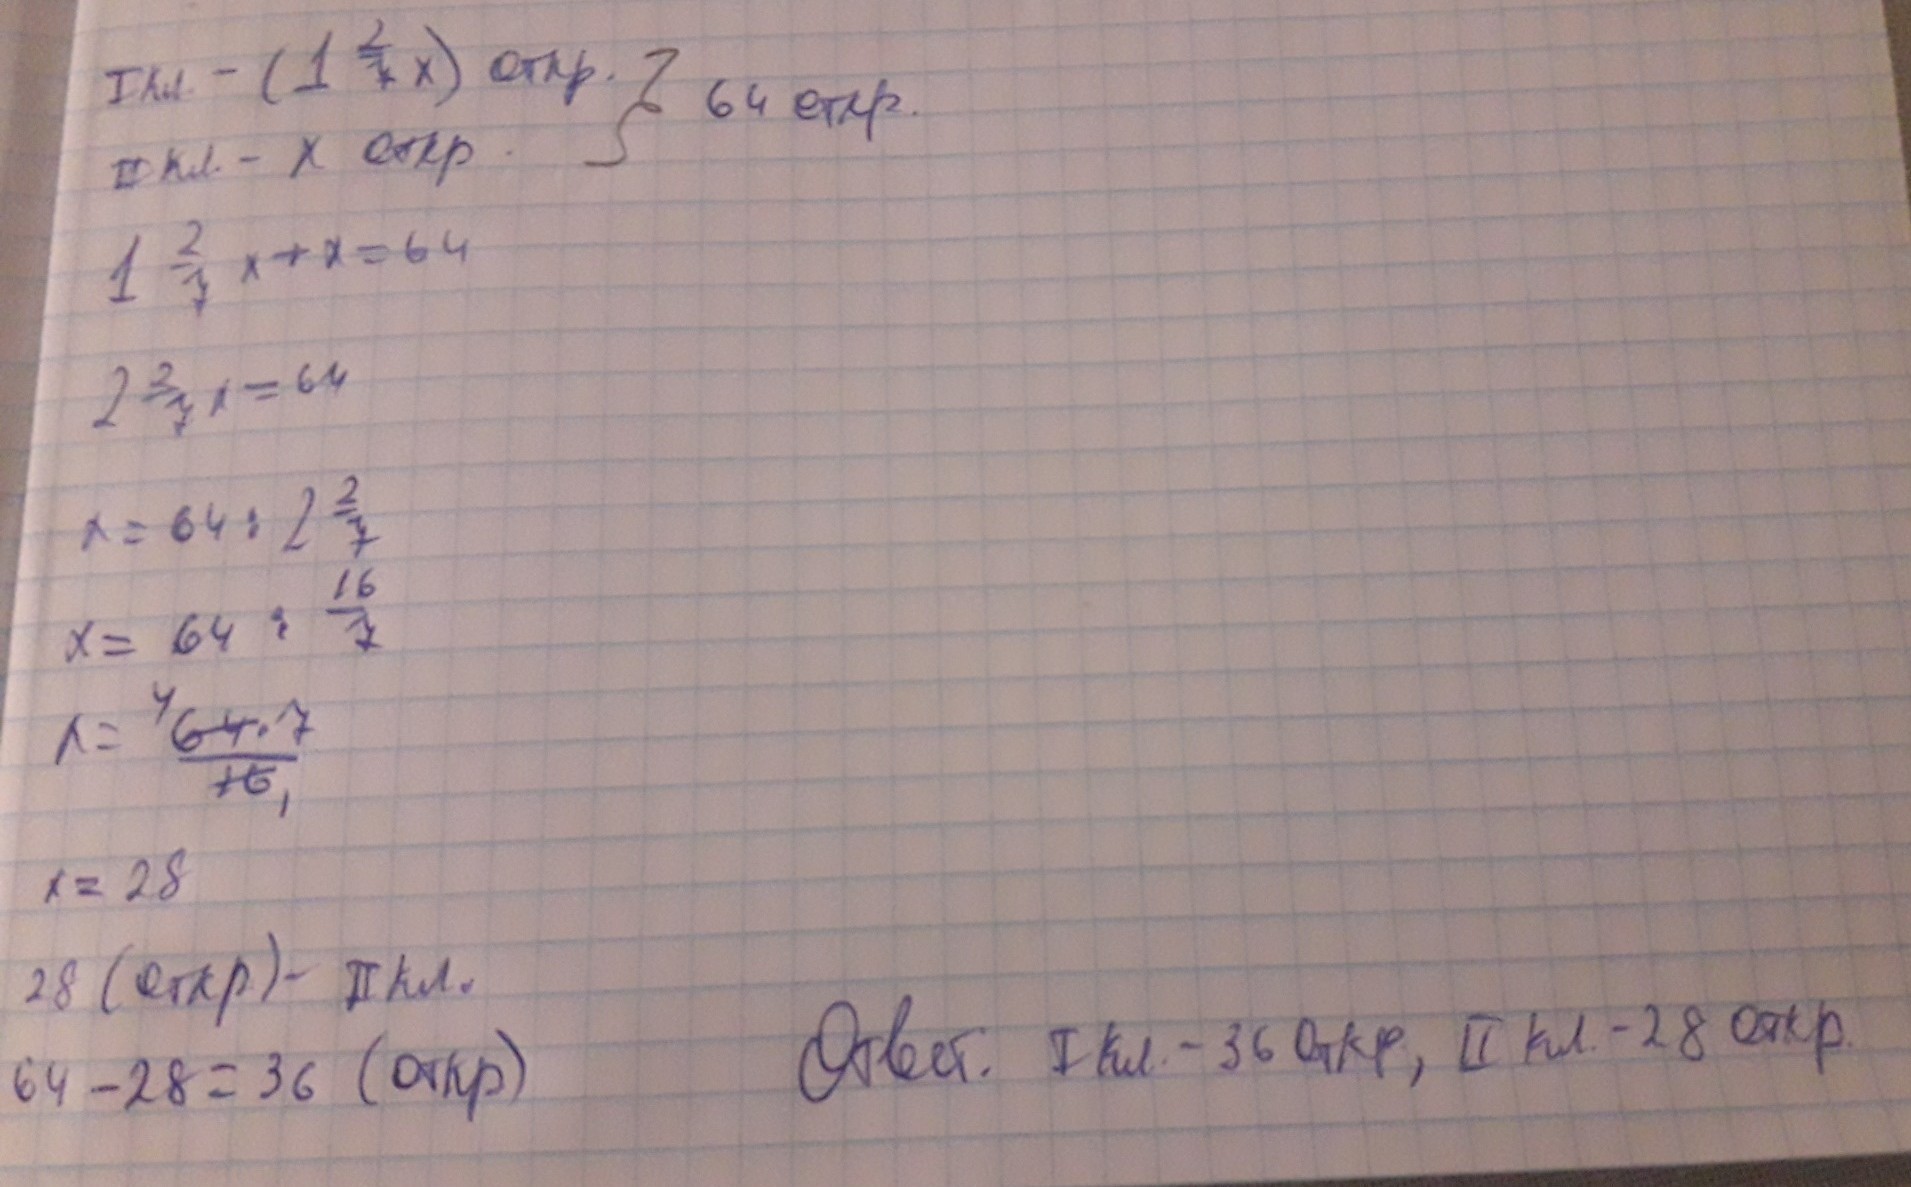 I кл. - (1 2/7 x) откр. } 64 откр.
II кл. - x откр.
1 2/7 x + x = 64
2 2/7 x = 64
x = 64 : 2 2/7
x = 64 : 16/7
x = 4 64·7/16 1
x = 28
28 (откр.) - II кл.
64 - 28 = 36 (откр)
Ответ. I кл. - 36 откр, II кл. - 28 откр.